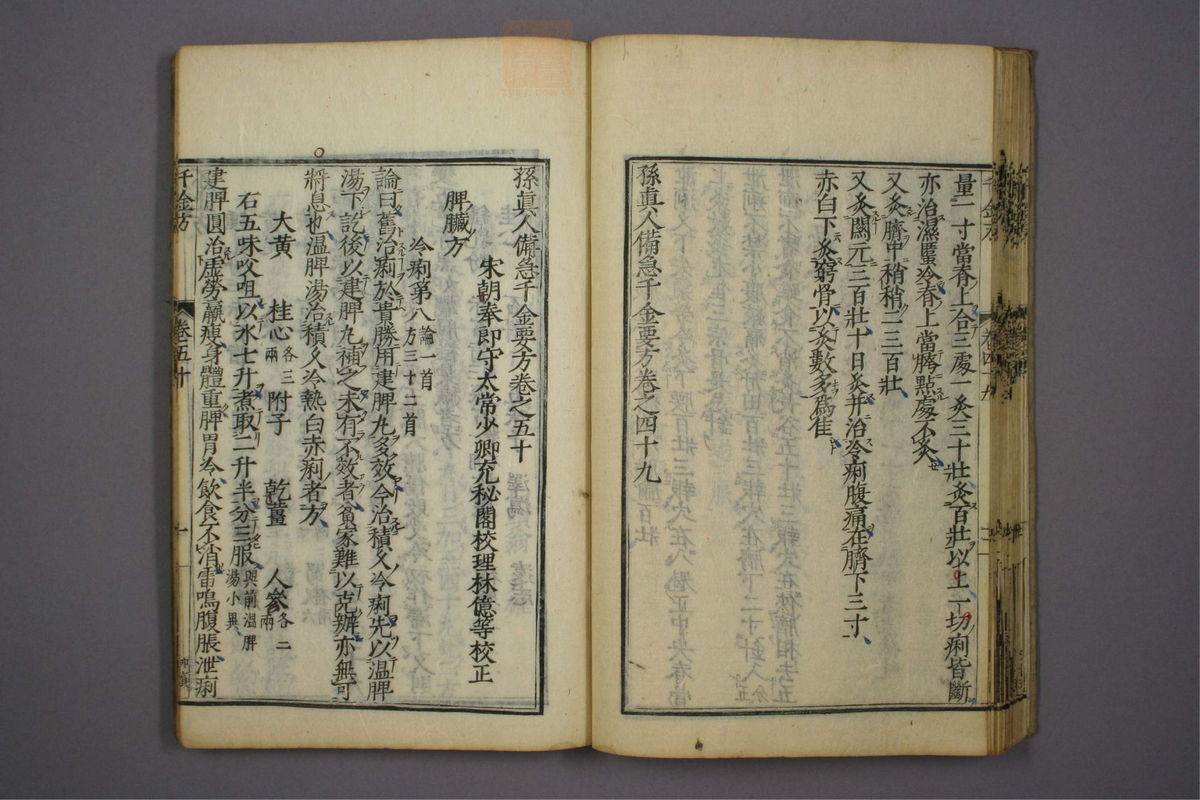 量一寸當脊上合三處一灸三十壯灸百壯以上一切痢皆斷
亦治濕䘌冷脊上當臍點處不灸
又灸臍中稍稍二三百壯
又灸關元三百壯十日灸并治冷痢腹痛在臍下三寸
赤白下灸窮骨以灸數多爲佳
孫眞人備急千金要方卷之四十九
孫眞人備急千金要方卷之五十
宋朝奉郎守太常少卿充秘閣校理林億等校正
脾臟方
冷痢第八論一首方三十二首
論曰舊治痢於貴勝用建脾丸多效今治積久冷痢先以温脾
湯下訖後以建脾丸補之未有不效者貧家難以克辦亦無可
將息也温脾湯治積久冷熱白赤痢者方
大黄 桂心各三兩 附子 乾薑 人參各二兩
右五味㕮咀以水七升煮取二升半分三服與前温脾湯小異
建脾圓治虚勞羸瘦身體重脾胃冷飲食不消雷鳴腹脹泄痢
千金方 卷五十 一